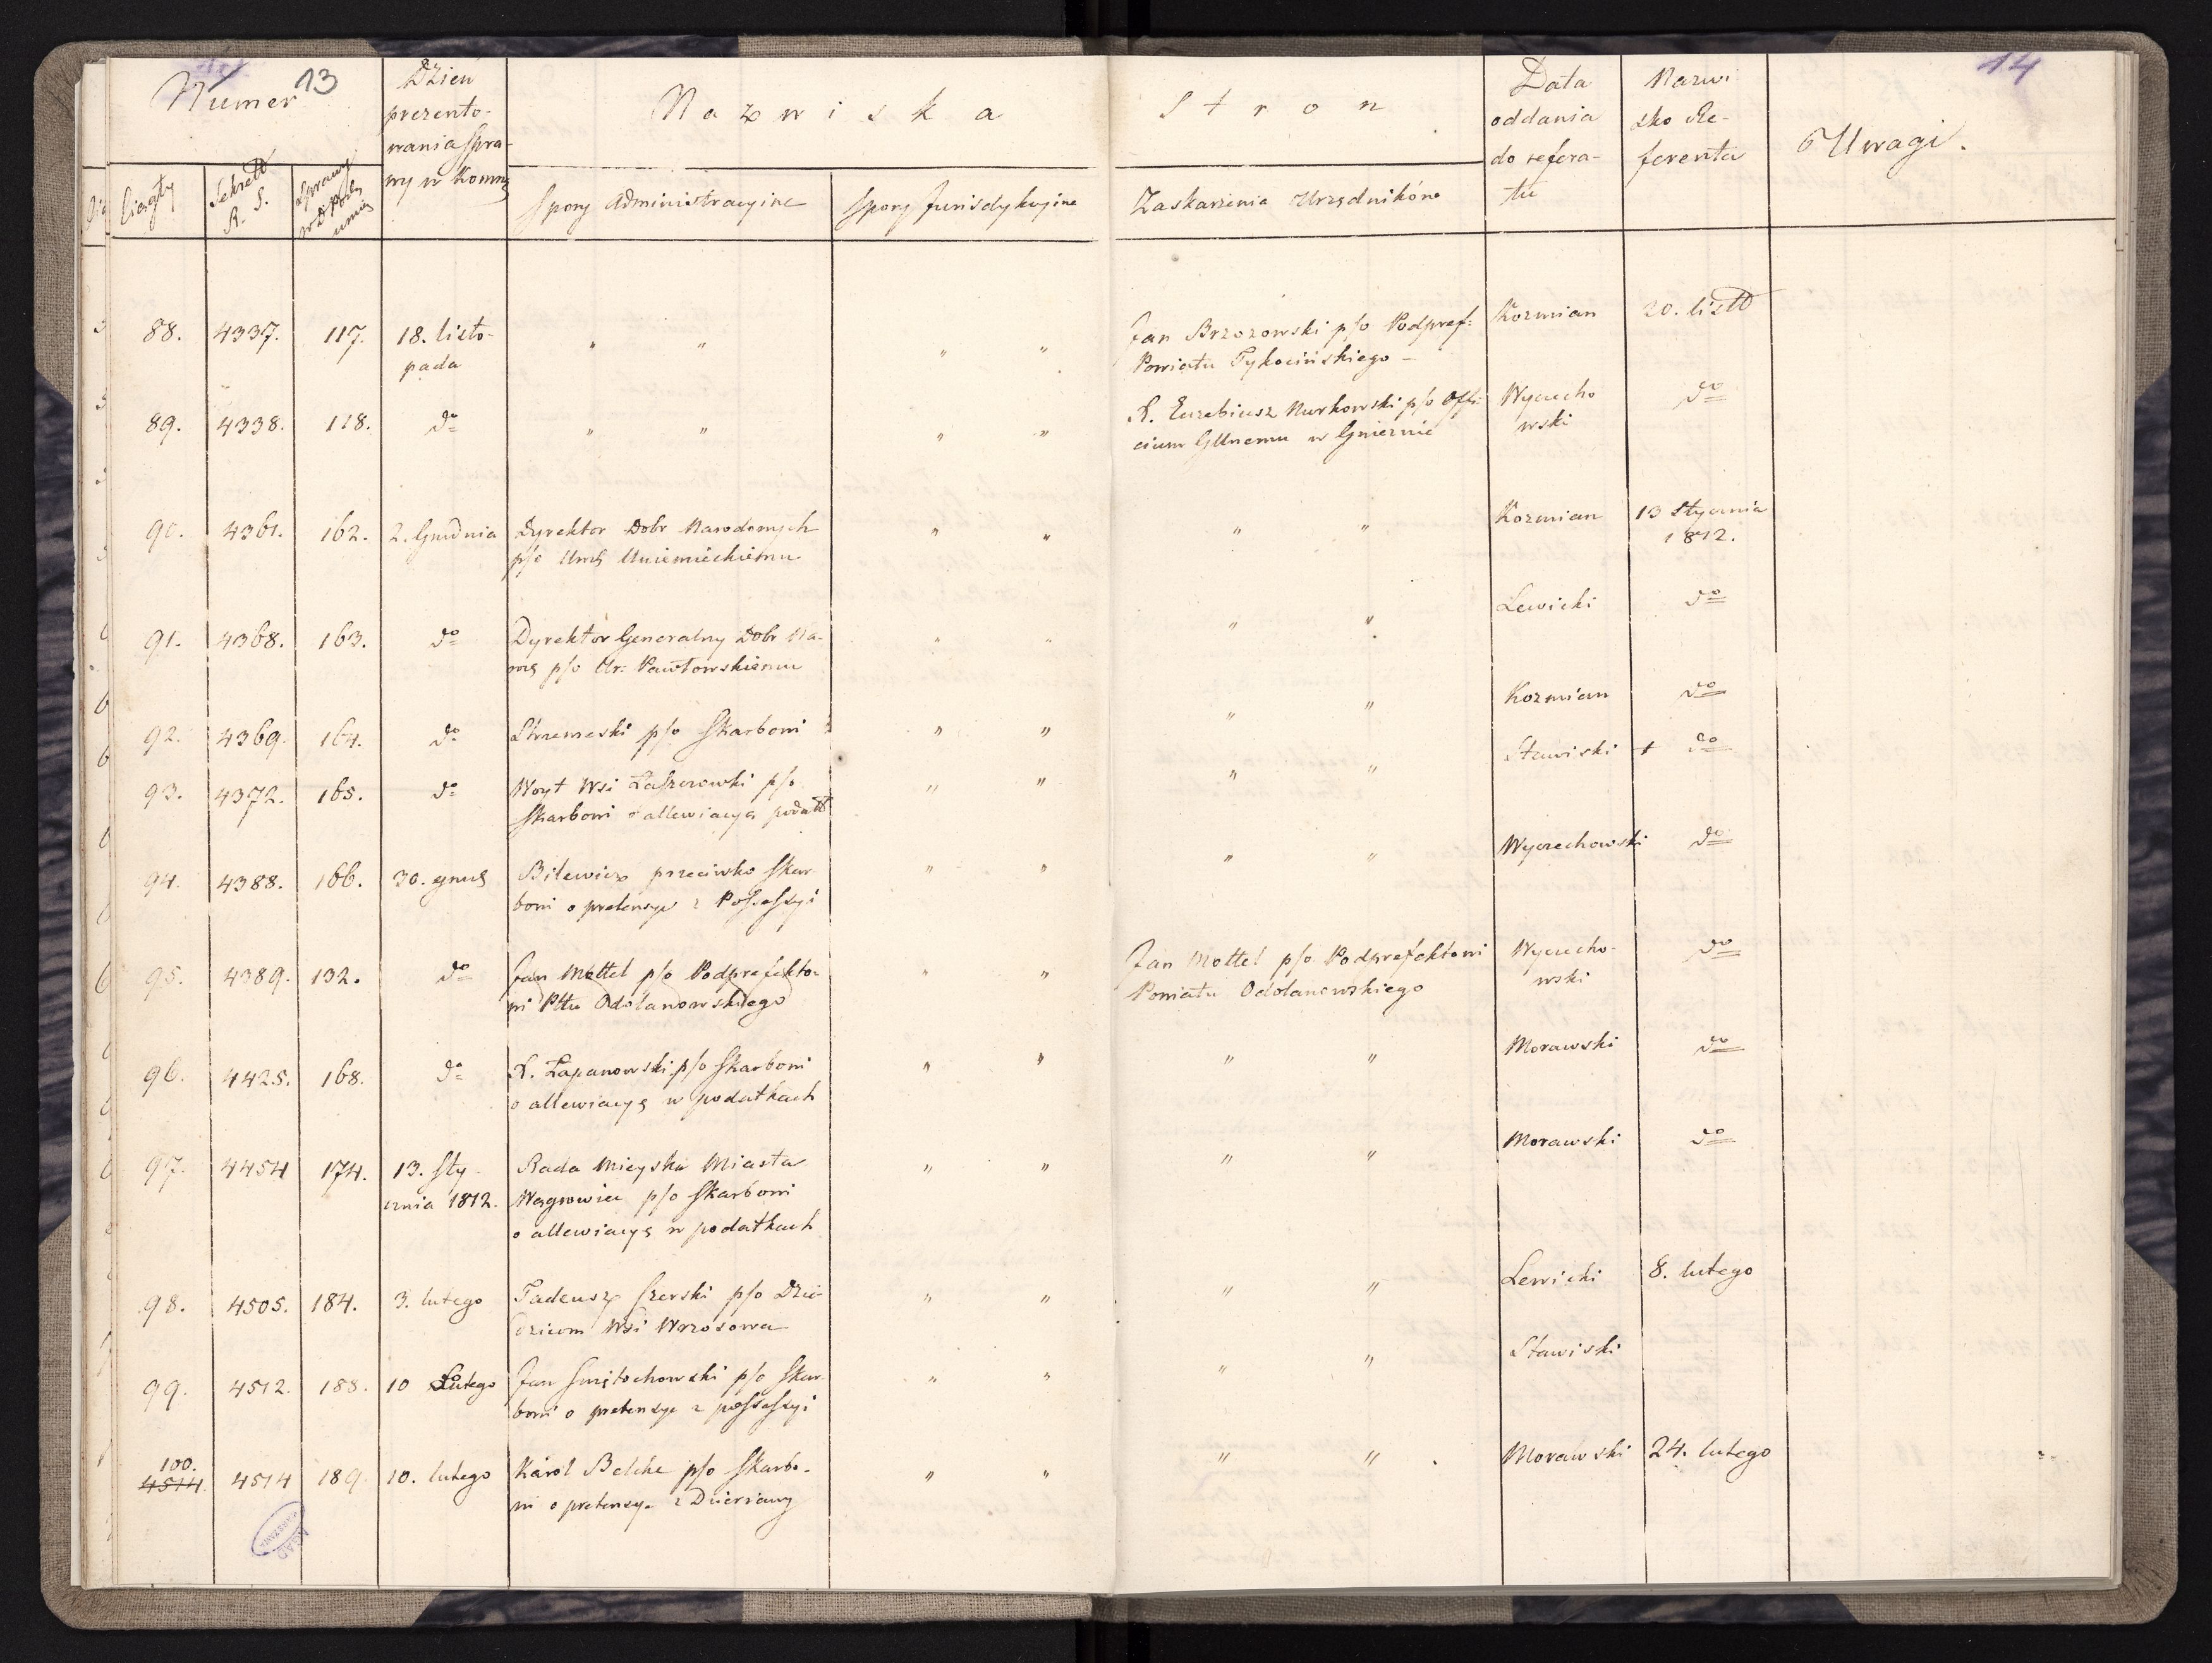 13
14
Numer
Dzień
prezento-
wania Spra-
wy w Kommis
Nazwiska
Stron
Data
oddania
do refera-
tu
Nazwi
sko Re-
ferenta
Uwagi.
Ciągły
Sekrett
R. S.
Sprawy
Spory Administracyine
Spory Jurisdykcyine
Zaskarżenia Urzędników
88. 4337. 117. 18. listo-
pada
" " " "
Jan Brzozowski p/o Podpref:
Powiatu Tykocińskiego –
Kozmian 20. listd
89. 4338. 118. do " " " "
X. Euzebiusz Nurkowski p/o Offi-
cium GUnemu w Gnieznie
Wyczecho
wski
do
90. 4361. 162. 2. Grudnia Dyrektor Dobr Narodowych
p/o Uniemieckiemu
" " " "
Kozmian 13 Stycznia
1812.
91. 4368. 163. do Dyrektor Generalny Dobr Na-
p/o Ur: Pawłowskiemu
" " " "
Lewicki do
92. 4369. 164. do p/o Skarbowi " " " "
Kozmian do
93. 4372. 165. do Woyt Wsi p/o
Skarbowi o allewiacyą podatt
" " " "
Stawiski + do
94. 4388. 166. 30. grud Bilewicz przeciwko Skar-
bowi o pretensye z Possessyi
" " " "
Wyczechowski do
95. 4389. 132. do Jan Mottel p/o Podprefekto-
wi Pttu Odolanowskiego
" "
Jan Mottel p/o Podprefektowi
Powiatu Odolanowskiego
Wyczecho-
wski
do
96. 4425. 168. do X. Łapanowski p/o Skarbowi
o allewiacyą w podatkach
" " " "
Morawski do
97. 4454 174. 13. Sty-
cznia 1812.
Rada Mieyska Miasta
Wągrowiec p/o Skarbowi
o allewiacyą w podatkach
" " " "
Morawski do
98. 4505. 184. 3. lutego Tadeusz p/o Dzie-
dzicom Wsi Wrzosowa
" " " "
Lewicki 8. lutego
99. 4512. 188. 10 Lutego Jan Swiętochowski p/o Skar-
bowi o pretensye z possessyi
" " " "
Stawiski
100.
4514. 4514 189. 10. lutego Karol Belcke p/o Skarbo-
wi o pretensye z Dzierżawy
" " " "
Morawski 24. lutego
AGAD
WARSZAWA